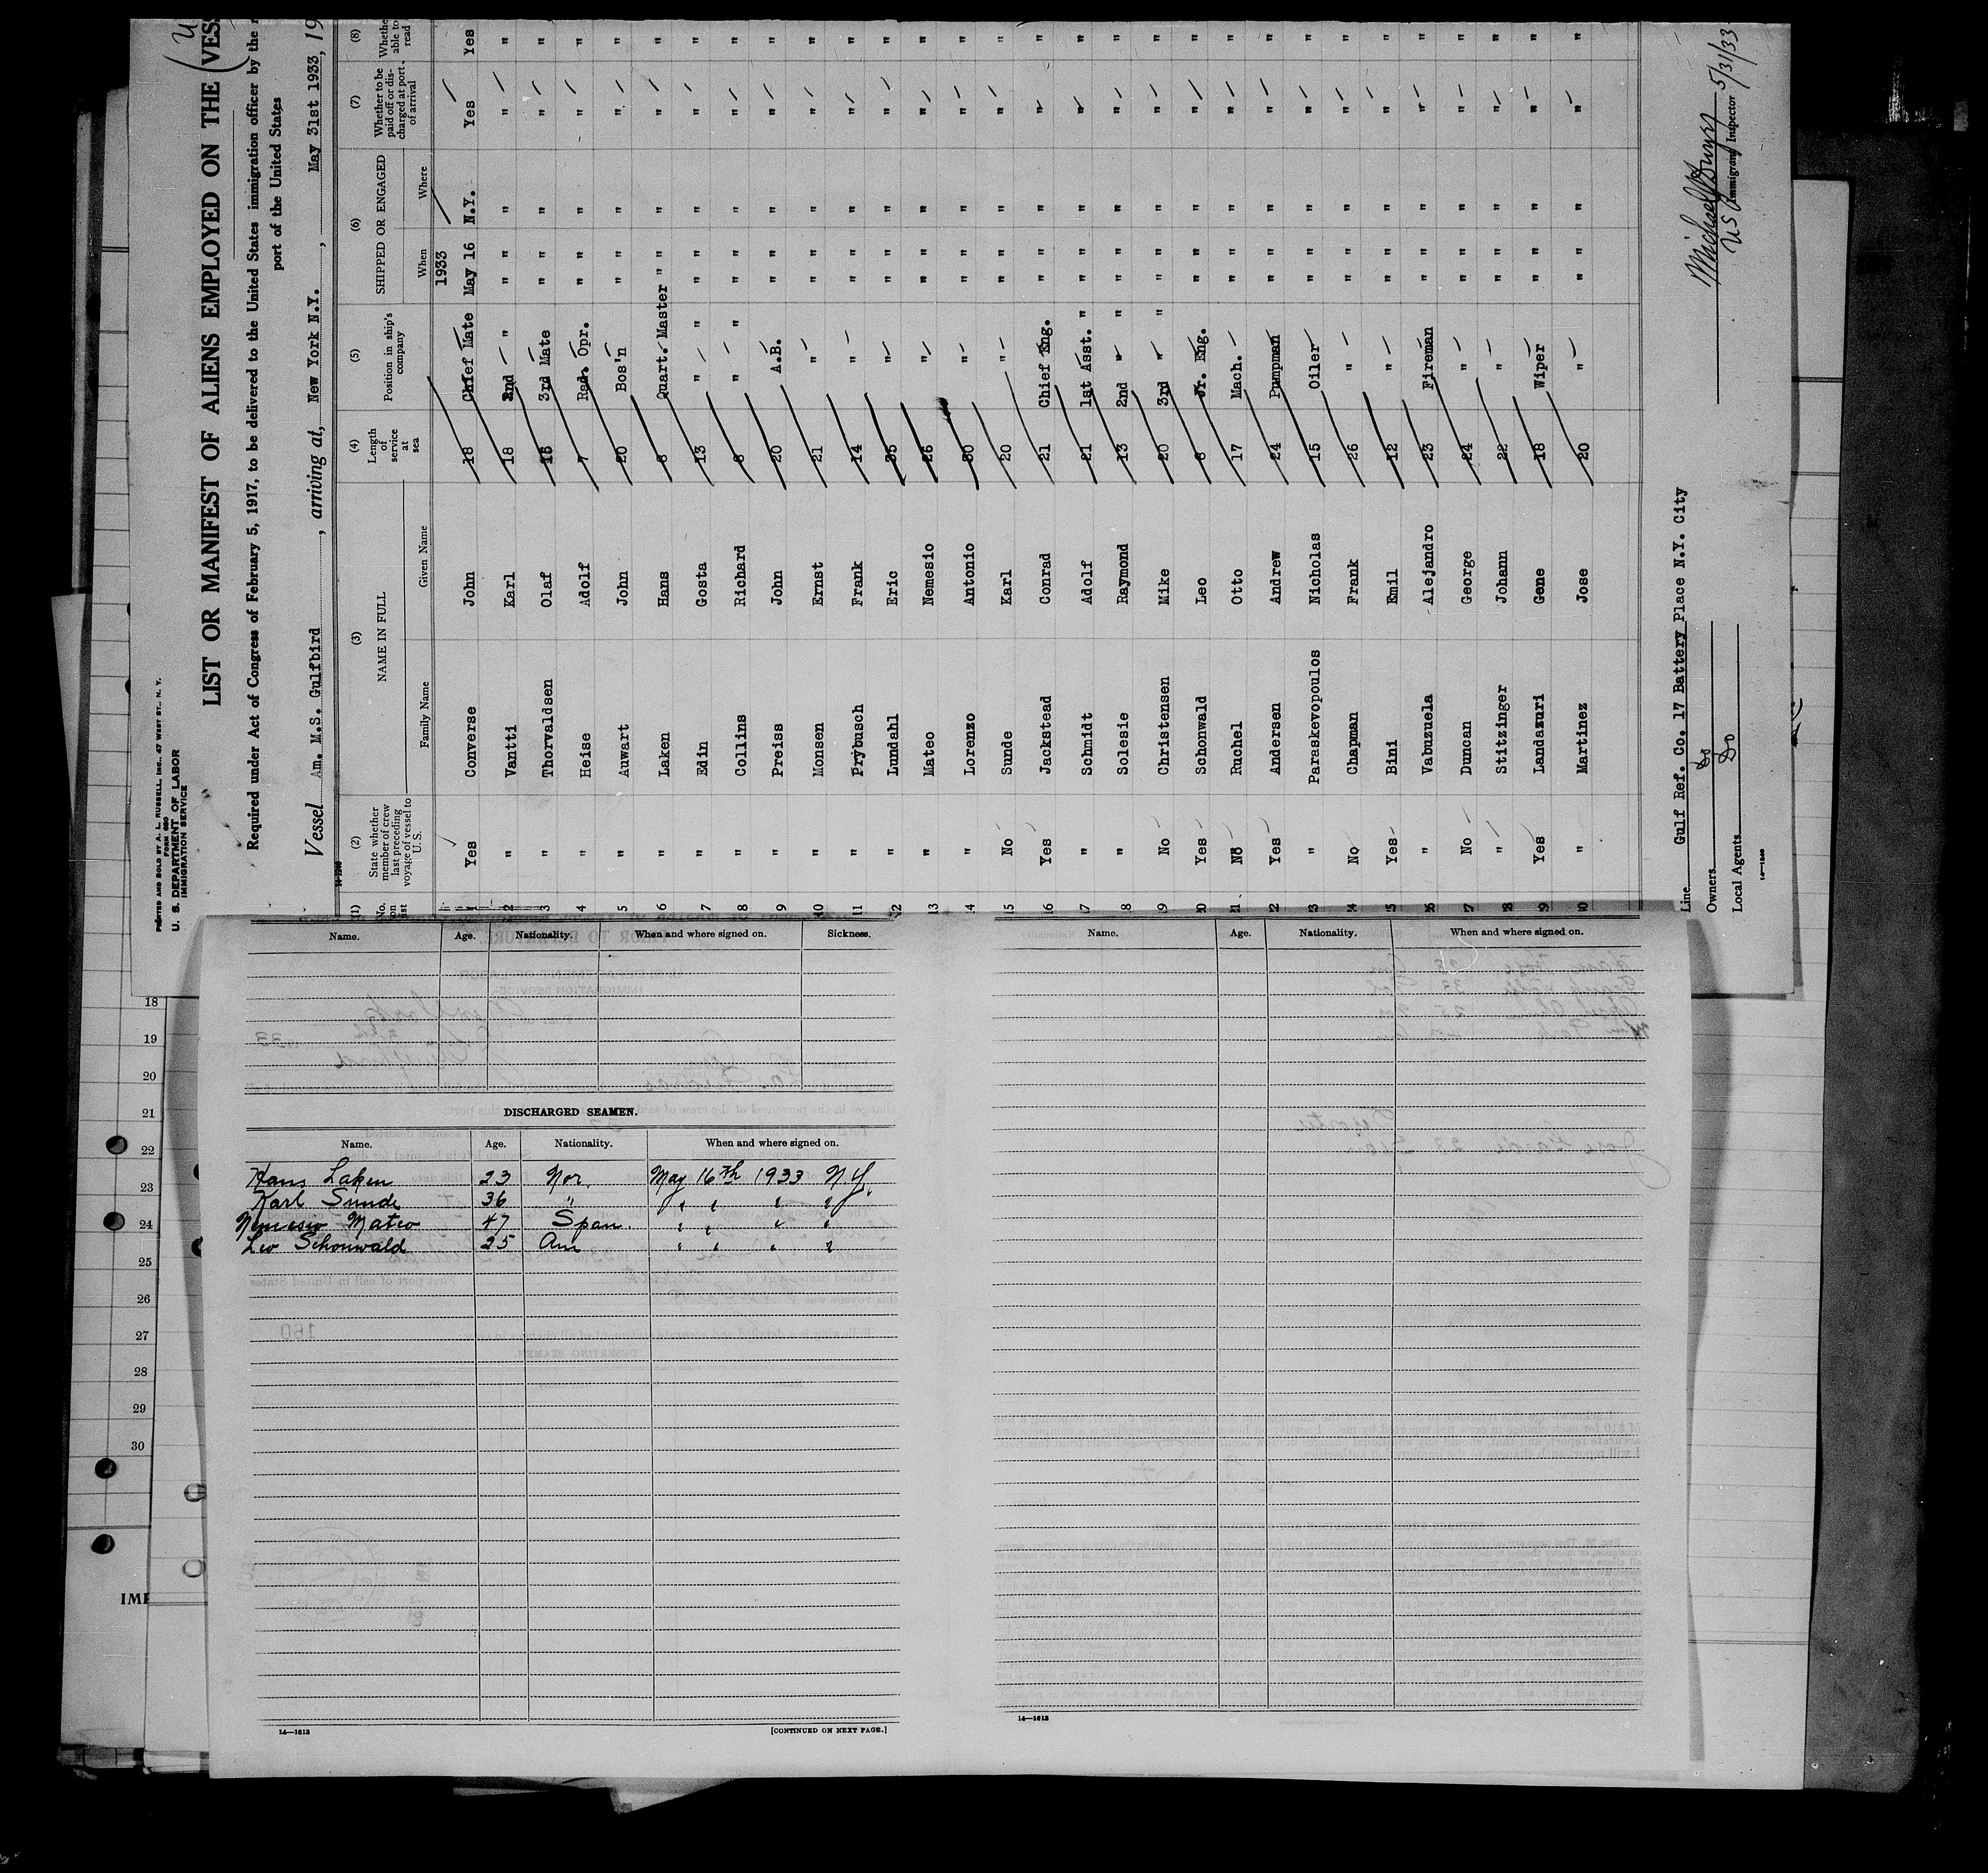 PRINTED AND SOLD BY A. L. RUSSELL, INC., 47 WEST ST., N. Y.
FORM 680
U. S. DEPARTMENT OF LABOR
IMMIGRATION SERVICE
LIST OR MANIFEST OF ALIENS EMPLOYED ON THE VESS
Required under Act of Congress of February 5, 1917, to be delivered to the United States immigration officer by the
port of the United States
Vessel Am. M.S. Gulfbird, arriving at, New York N.Y., May 31st 1933, 19
(1) (2) (3) (4) (5) (6) (7) (8)
No. on list State whether member of crew last preceding voyage of vessel to U. S. NAME IN FULL Family Name Given Name Length of service at sea Position in ship's company SHIPPED OR ENGAGED When Where Whether to be paid off or discharged at port of arrival Whether able to read
1933
1 Yes Converse John 18 Chief Mate May 16 N.Y. Yes Yes
2 " Vantti Karl 18 2nd " " " " " "
3 " Thorvaldsen Olaf 15 3rd Mate " " " " "
4 " Heise Adolf 7 Rad. Opr. " " " " "
5 " Auwart John 20 Bos'n " " " " "
6 " Laken Hans 6 Quart. Master " " " " "
7 " Edin Gosta 13 " " " " " " "
8 " Collins Richard 8 " " " " " " "
9 " Preiss John 20 A.B. " " " " "
10 " Monsen Ernst 21 " " " " " "
11 " Prybusch Frank 14 " " " " " "
12 " Lundahl Eric 35 " " " " " "
13 " Mateo Nemesio 26 " " " " " "
14 " Lorenzo Antonio 30 " " " " " "
15 No Sunde Karl 20 " " " " " "
16 Yes Jackstead Conrad 21 Chief Eng. " " " " "
17 " Schmidt Adolf 21 1st Asst. " " " " " "
18 " Solesie Raymond 13 2nd " " " " " " "
19 No Christensen Mike 20 3rd " " " " " " "
20 Yes Schonwald Leo 6 Jr. Eng. " " " " "
21 No Ruchel Otto 17 Mach. " " " " "
22 Yes Andersen Andrew 24 Pumpman " " " " "
23 " Paraskevopoulos Nicholas 15 Oiler " " " " "
24 No Chapman Frank 26 " " " " " "
25 Yes Bini Emil 12 " " " " " "
26 " Vabuzuela Alejandro 23 Fireman " " " " "
27 No Duncan George 24 " " " " " "
28 " Stitzinger Johann 22 " " " " " "
29 Yes Landazuri Gene 18 Wiper " " " " "
30 " Martinez Jose 20 " " " " " "
Line Gulf Ref. Co. 17 Battery Place N.Y. City
Owners Do
Local Agents Do
14—1240
5/31/33
US Immigrant Inspector
Name. Age. Nationality. When and where signed on. Sickness.
DISCHARGED SEAMEN.
Name. Age. Nationality. When and where signed on.
Hans Laken 23 Nor. May 16th 1933 N.Y.
Karl Sunde 36 " " " " "
Nemesio Mateo 47 Span. " " " "
Leo Schonwald 25 Am " " " "
14—1613
[CONTINUED ON NEXT PAGE.]
Name. Age. Nationality. When and where signed on.
14—1613
18
19
20
21
22
23
24
25
26
27
28
29
30